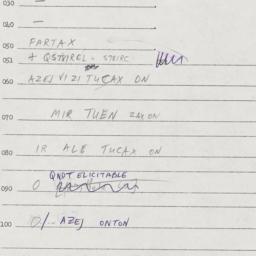 030 —
040 —
050 FARTAX
051
060 AZEJ VIZI TUCAX ON
070 MIR TUEN ZAXON
080 IR ALE TUCAX ON
QNOT ELICITABLE
090 O
100 O/-- AZEJ ONTON